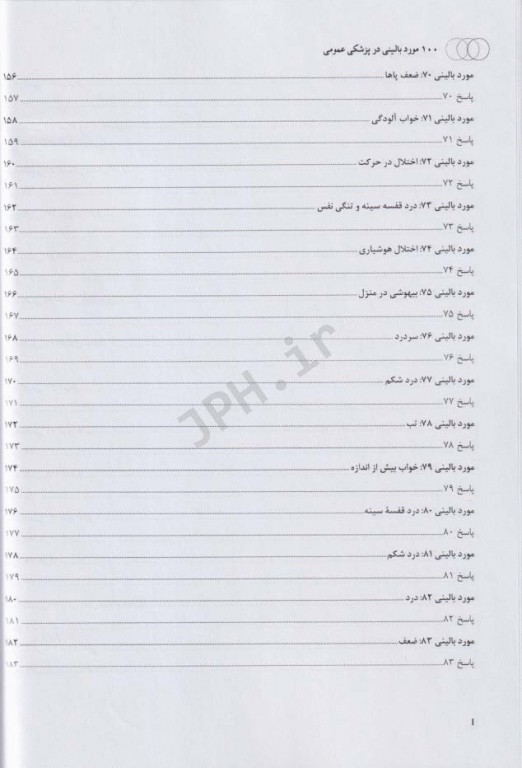 ۱۰۰ مورد بالینی در پزشکی عمومی
مورد بالینی ۷۰: ضعف پاها ۱۵۶
پاسخ ۷۰ ۱۵۷
مورد بالینی ۷۱: خواب آلودگی ۱۵۸
پاسخ ۷۱ ۱۵۹
مورد بالینی ۷۲: اختلال در حرکت ۱۶۰
پاسخ ۷۲ ۱۶۱
مورد بالینی ۷۳: درد قفسه سینه و تنگی نفس ۱۶۲
پاسخ ۷۳ ۱۶۳
مورد بالینی ۷۴: اختلال هوشیاری ۱۶۴
پاسخ ۷۴ ۱۶۵
مورد بالینی ۷۵: بیهوشی در منزل ۱۶۶
پاسخ ۷۵ ۱۶۷
مورد بالینی ۷۶: سردرد ۱۶۸
پاسخ ۷۶ ۱۶۹
مورد بالینی ۷۷: درد شکم ۱۷۰
پاسخ ۷۷ ۱۷۱
مورد بالینی ۷۸: تب ۱۷۲
پاسخ ۷۸ ۱۷۳
مورد بالینی ۷۹: خواب بیش از اندازه ۱۷۴
پاسخ ۷۹ ۱۷۵
مورد بالینی ۸۰: درد قفسهٔ سینه ۱۷۶
پاسخ ۸۰ ۱۷۷
مورد بالینی ۸۱: درد شکم ۱۷۸
پاسخ ۸۱ ۱۷۹
مورد بالینی ۸۲: درد ۱۸۰
پاسخ ۸۲ ۱۸۱
مورد بالینی ۸۳: ضعف ۱۸۲
پاسخ ۸۳ ۱۸۳
JPH.ir